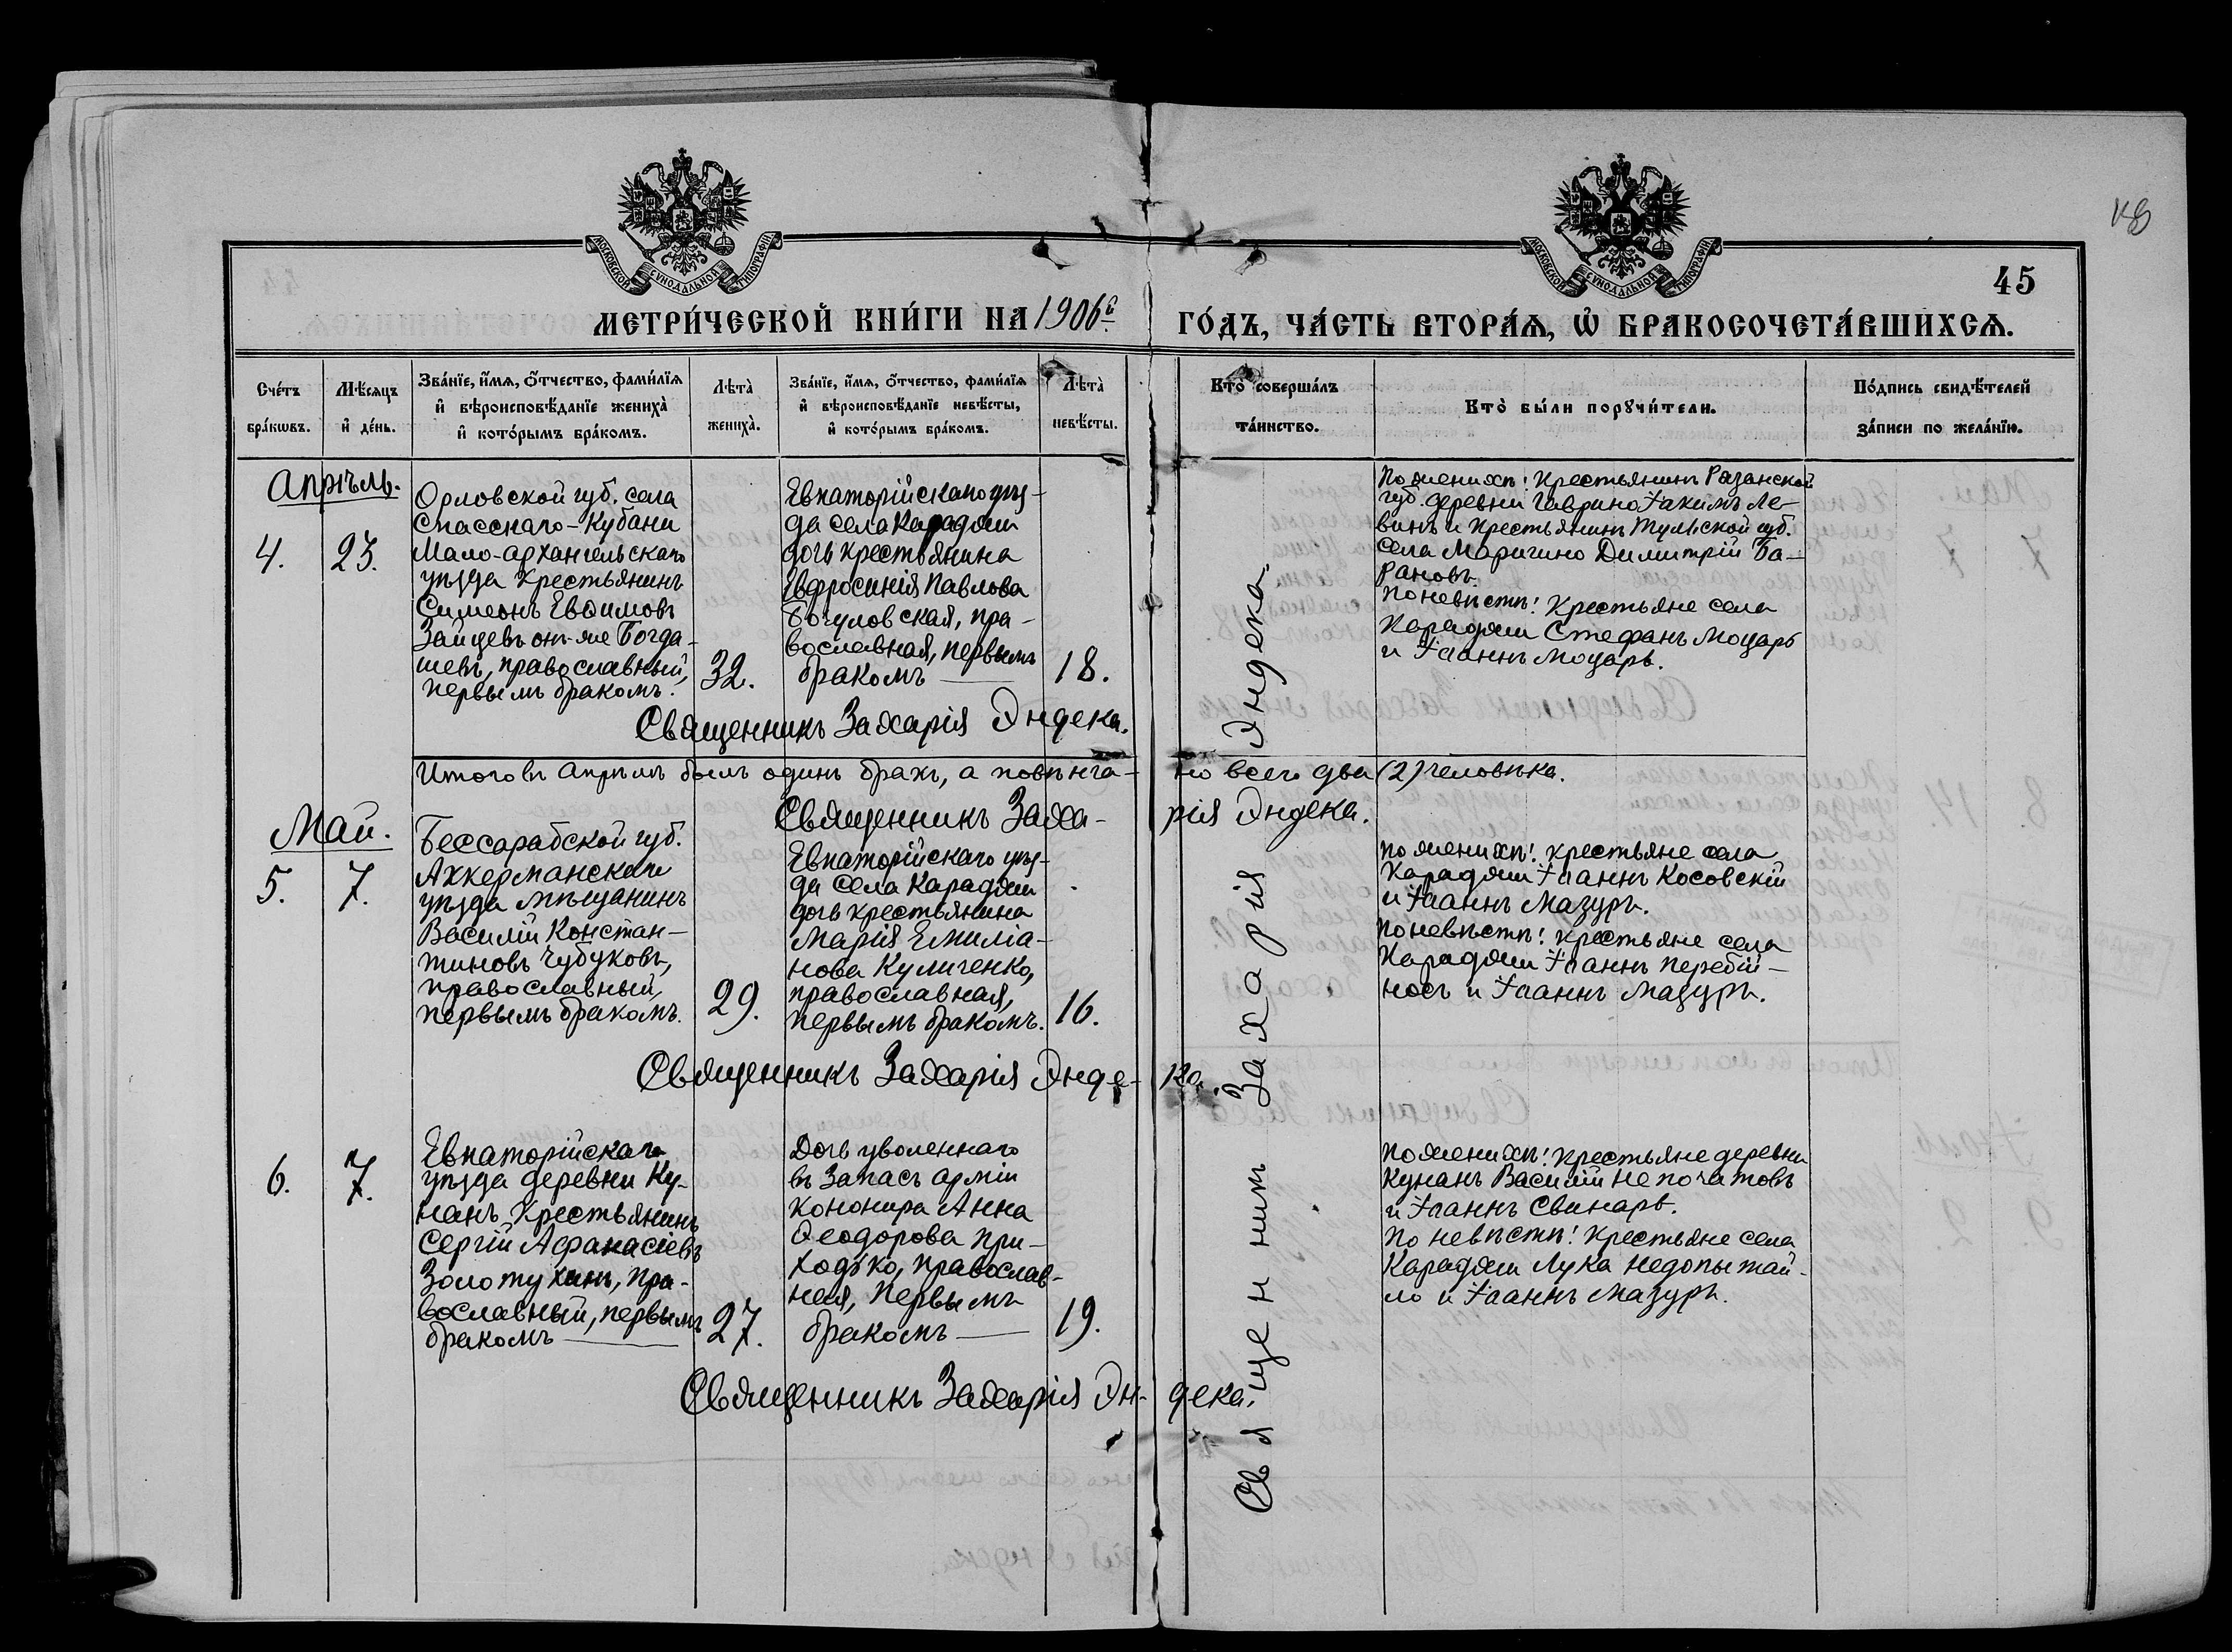 45
МЕТРИ́ЧЕСКОЙ КНИ́ГИ НА 1906й ГО́ДЪ, ЧА́СТЬ ВТОРА́Я, Ѡ БРАКОСОЧЕТА́ВШИХСЯ.
Сче́тъ
бра́кѡвъ.
Мѣ́сяцъ
и де́нь.
Зва́нїе, и́мя, о́тчество, фами́лїя
и вѣроисповѣ́данїе жениха̀
и кото́рымъ бра́комъ.
Лѣта̀
жениха̀.
Зва́нїе, и́мя, о́тчество, фами́лїя
и вѣроисповѣ́данїе невѣ́сты,
и кото́рымъ бра́комъ.
Лѣта̀
невѣ́сты.
Кто̀ соверша́лъ
та́инство.
Кто̀ бы́ли порꙋчи́тели.
По́дпись свидѣ́телей
за́писи по жела́нїю.
Апрѣль.
4.
23.
Орловской губ. села
Спасскаго-Кубани
Мало-Архангельскаго
уѣзда крестьянинъ
Симеонъ Евѳимовъ
Зайцевъ онъ-же Богда-
шевъ, православный,
первымъ бракомъ.
32.
Евпаторійскаго уѣз-
да села Караджи
дочь крестьянина
Евфросинія Павлова
Богуловская, пра-
вославная, первымъ
бракомъ
18.
По женихѣ: Крестьянинъ Рязанской
губ. деревни Гаврино Іакимъ Ле-
винъ и Крестьянинъ Тульской губ.
села Маричино Димитрій Ба-
рановъ.
По невѣстѣ: Крестьяне села
Караджи Стефанъ Моцарь
и Іоаннъ Моцарь.
Священникъ Захарія Эндека.
Итого въ Апрѣлѣ былъ одинъ бракъ, а повѣнча- но всего два (2) человѣка.
Священникъ Заха- рія Эндека.
Май.
5.
7.
Бессарабской губ.
Аккерманскаго
уѣзда мѣщанинъ
Василій Констан-
тиновъ Чубуковъ,
православный,
первымъ бракомъ.
29.
Евпаторійскаго уѣз-
да села Караджи
дочь крестьянина
Марія Емиліа-
нова Куличенко,
православная,
первымъ бракомъ.
16.
По женихѣ: крестьяне села
Караджи Іоаннъ Косовскій
и Іоаннъ Мазуръ.
По невѣстѣ: крестьяне села
Караджи Іоаннъ Перебій-
носъ и Іоаннъ Мазуръ.
Священникъ Захарія Энде- ка.
6.
7.
Евпаторійскаго
уѣзда деревни Ку-
нанъ крестьянинъ
Сергій Афанасіевъ
Золотухинъ, пра-
вославный, первымъ
бракомъ
27.
Дочь уволеннаго
въ запасъ арміи
канонира Анна
Ѳеодорова При-
ходько, православ-
ная, первымъ
бракомъ
19.
По женихѣ: крестьяне деревни
Кунанъ Василій Непочатовъ
и Іоаннъ Свинарь.
По невѣстѣ: крестьяне села
Караджи Лука Недопытай-
ло и Іоаннъ Мазуръ.
Священникъ Захарія Эн- дека.
Священникъ Захарія Эндека.